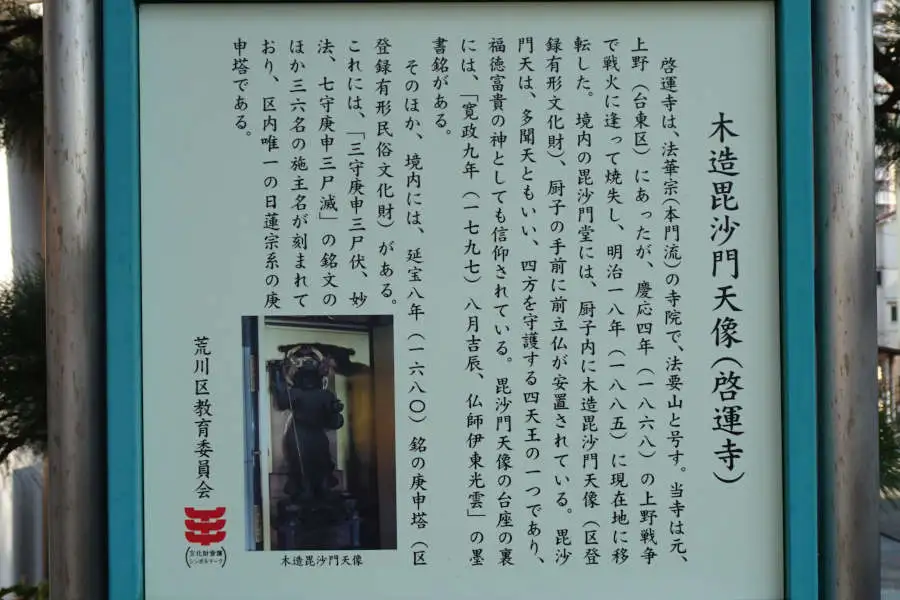 木造毘沙門天像(啓運寺)
啓運寺は、法華宗(本門流)の寺院で、法要山と号す。当寺は元、
上野(台東区)にあったが、慶応四年(一八六八)の上野戦争
で戦火に逢って焼失し、明治一八年(一八八五)に現在地に移
転した。境内の毘沙門堂には、厨子内に木造毘沙門天像(区登
録有形文化財)、厨子の手前に前立仏が安置されている。毘沙
門天は、多聞天ともいい、四方を守護する四天王の一つであり、
福徳富貴の神としても信仰されている。毘沙門天像の台座の裏
には、「寛政九年(一七九七)八月吉辰、仏師伊東光雲」の墨
書銘がある。
そのほか、境内には、延宝八年(一六八〇)銘の庚申塔(区
登録有形民俗文化財)がある。
これには、「三守庚申三尸伏、妙
法、七守庚申三尸滅」の銘文の
ほか三六名の施主名が刻まれて
おり、区内唯一の日蓮宗系の庚
申塔である。
木造毘沙門天像
荒川区教育委員会
文化財愛護
シンボルマーク